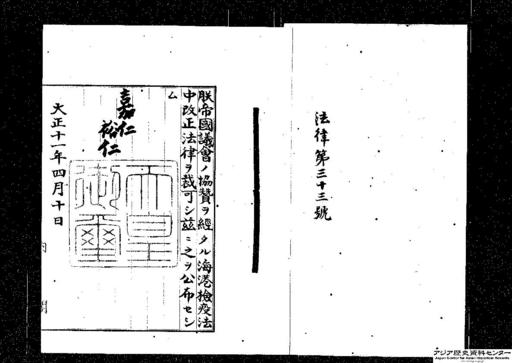 法律第三十三號
朕帝國議會ノ協贊ヲ經タル海港檢疫法
中改正法律ヲ裁可シ玆ニ之ヲ公布セシ
ム
嘉仁
裕仁
天皇
御璽
大正十一年四月十日
アジア歴史資料センター
Japan Center for Asian Historical Records